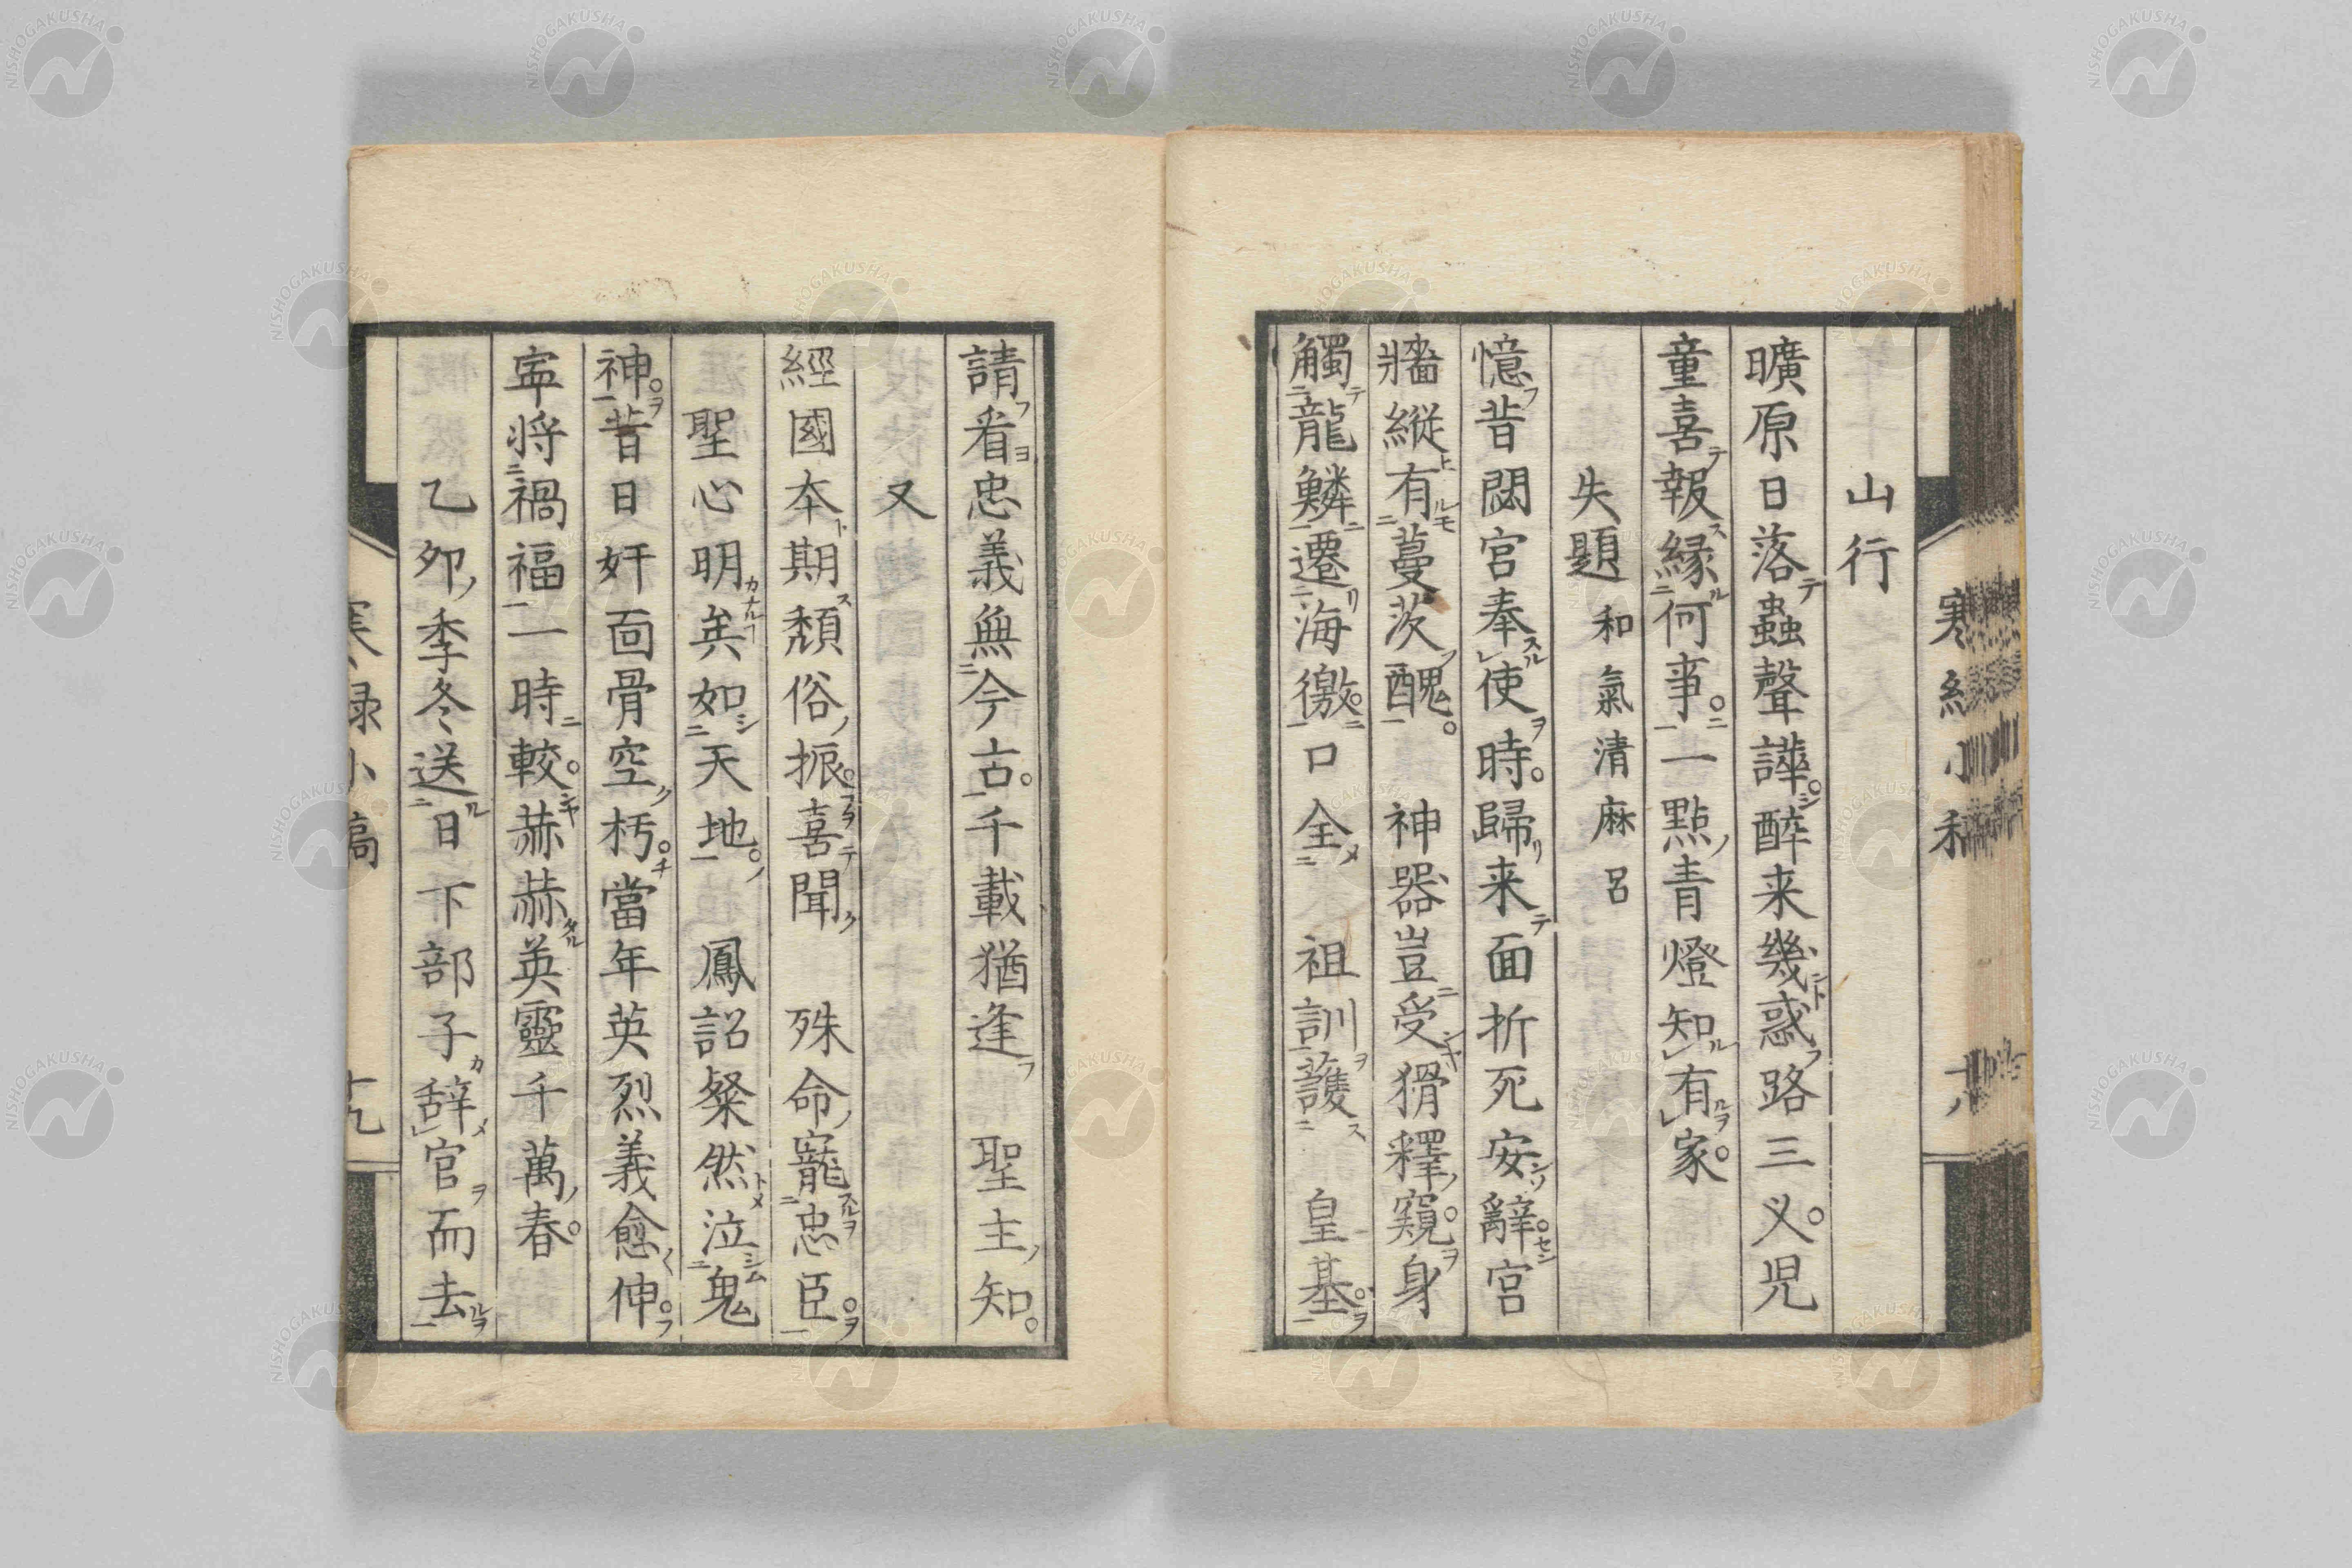 山行
曠原日落蟲聲譁醉来幾惑路三义児
童喜報縁何事一點青燈知有家
失題 和氣清麻呂
憶昔閟宮奉使時歸来面折死安辭宮
牆縦有蔓茨醜 神器豈受猾釋窺身
觸龍鱗遷海徼口全 祖訓護 皇基
請看忠義無今古千載猶逢 聖主知
又
經國本期頽俗振喜聞 殊命寵忠臣
聖心明矣如天地 鳳詔粲然泣鬼
神昔日奸面骨空朽當年英烈義愈伸
寧将禍福一時較赫赫英靈千萬春
乙夘季冬送日下部子辞官而去
寒緑小稿 十九
NISHOGAKUSHA